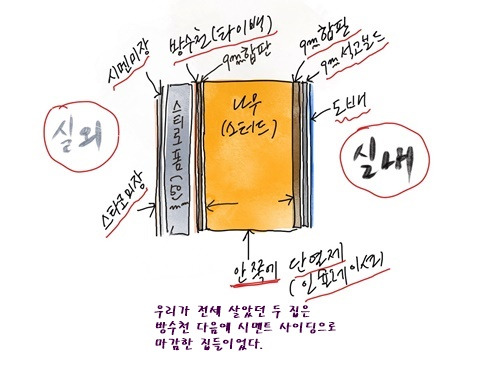 방수천(타이백)
시멘미장
9㎜합판
9㎜합판
9㎜석고보드
도배
스티로폼
나무
(스터드)
실외
실내
스타코미장
안쪽에 단열제
(인슐레이셔)
우리가 전세 살았던 두 집은
방수천 다음에 시멘트 사이딩으로
마감한 집들이었다.